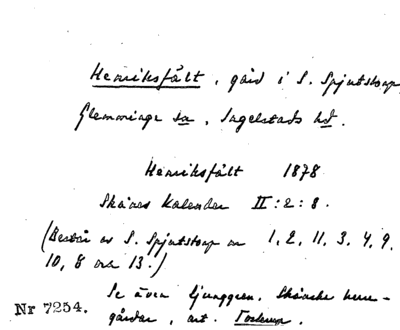 Henriksfält, gård i S. Spjutstorp
Glemminge sn, Ingelstads hd.
Henriksfält 1878
Skånes Kalender II:2:8.
(Består av S. Spjutstorp nr 1, 2, 11, 3, 4, 9,
10, 8 och 13.)
Se även Ljunggren, Skånska herre-
gårdar, art. Tosterup.
Nr 7254.